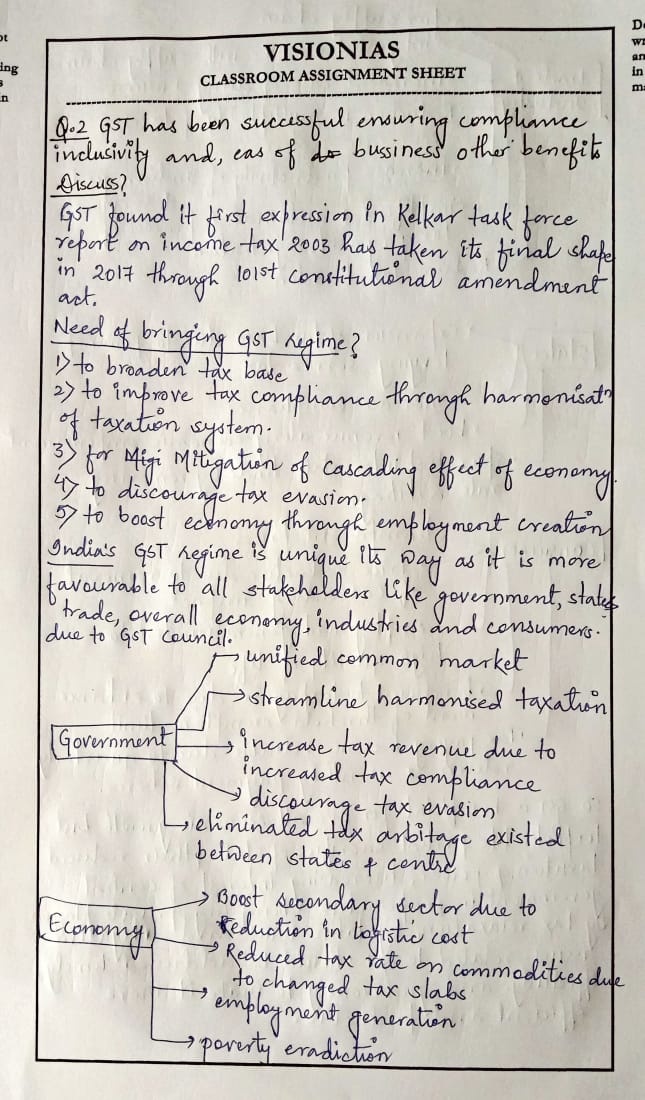 ot
ing
s
n
De
wr
an
in
ma
VISIONIAS
CLASSROOM ASSIGNMENT SHEET
Q.2 GST has been successful ensuring compliance
inclusivity and, eas of do bussiness other benefits
Discuss?
GST found it first expression in Kelkar task force
report on income tax 2003 has taken its final shape
in 2017 through 101st constitutional amendment
act.
Need of bringing GST regime?
1) to broaden tax base
2) to improve tax compliance through harmonisatn
of taxation system.
3) for Migi Mitigation of cascading effect of economy.
4) to discourage tax evasion.
5) to boost economy through employment creation
India's GST regime is unique its way as it is more
favourable to all stakeholders like government, states
trade, overall economy, industries and consumers.
due to GST council.
unified common market
streamline harmonised taxation
Government
increase tax revenue due to
increased tax compliance
discourage tax evasion
eliminated tax arbitage existed
between states & centre
Boost secondary sector due to
reduction in logistic cost
Economy
Reduced tax rate on commodities due
to changed tax slabs
employment generation
poverty eradiction